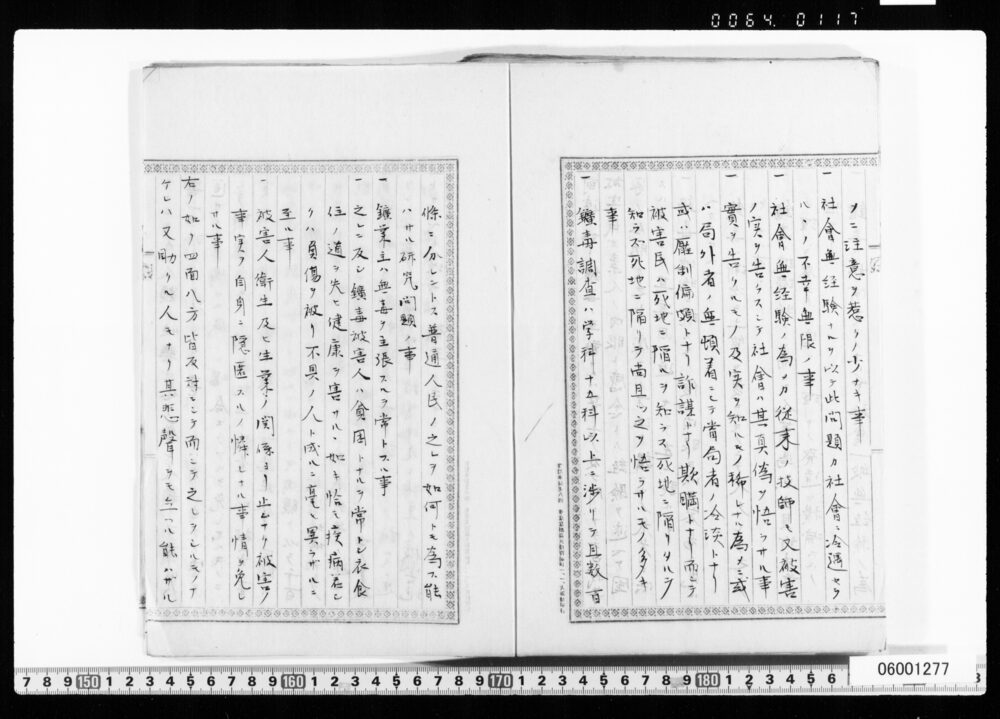 0064.0117
ノニ注意ヲ惹クノ少ナキ事
一 社會無経験ナルヲ以テ此問題カ社會ニ冷遇セラ
ルヽノ不幸無限ノ事
一 社會無経験ノ為メカ従来ノ技師モ又被害
ノ実ヲ告ケスシテ社會ハ其真偽ヲ悟ラサル事
一 實ヲ告クルモノ及実ヲ知ルモノ稀レナル為メニ或
ハ局外者ノ無頓着ニシテ當局者ノ冷淡トナリ
或ハ壓制偏頗トナリ詐謀トナリ欺瞞トナリ而シテ
被害民ハ死地ニ陥ルヲ知ラス死地ニ陥リタルヲ
知ラズ死地ニ陥リテ尚且ツ之ヲ悟ラサルモノ多キ
事
一 鑛毒調査ハ学科十五科以上ニ渉リテ且数百
條ニ分レントス普通人民ノ之レヲ如何トモ為ス能
ハサル研究問題ノ事
一 鑛業主ハ無毒ヲ主張スルヲ常トスル事
一 之レニ反シ鑛毒被害人ハ貧困トナルヲ常トシ衣食
住ノ道ヲ失ヒ健康ヲ害サル、如キ恰モ疾病若シ
クハ負傷ヲ被リ不具ノ人ト成ルニ毫モ異ラザルニ
至ル事
一 被害人衛生及ヒ生業ノ関係ヨリ止ムナク被害ノ
事実ヲ自身ニ隠匿スルノ憐レナル事情ヲ免レ
サル事
右ノ如ク四面八方皆反対ニシテ而シテ之レヲシルモノナ
ケレハ又助クル人モナク其悲聲ヲモ立ツル能ハザル
7 8 9 150 1 2 3 4 5 6 7 8 9 160 1 2 3 4 5 6 7 8 9 170 1 2 3 4 5 6 7 8 9 180 1 2 3 4 5 6
06001277